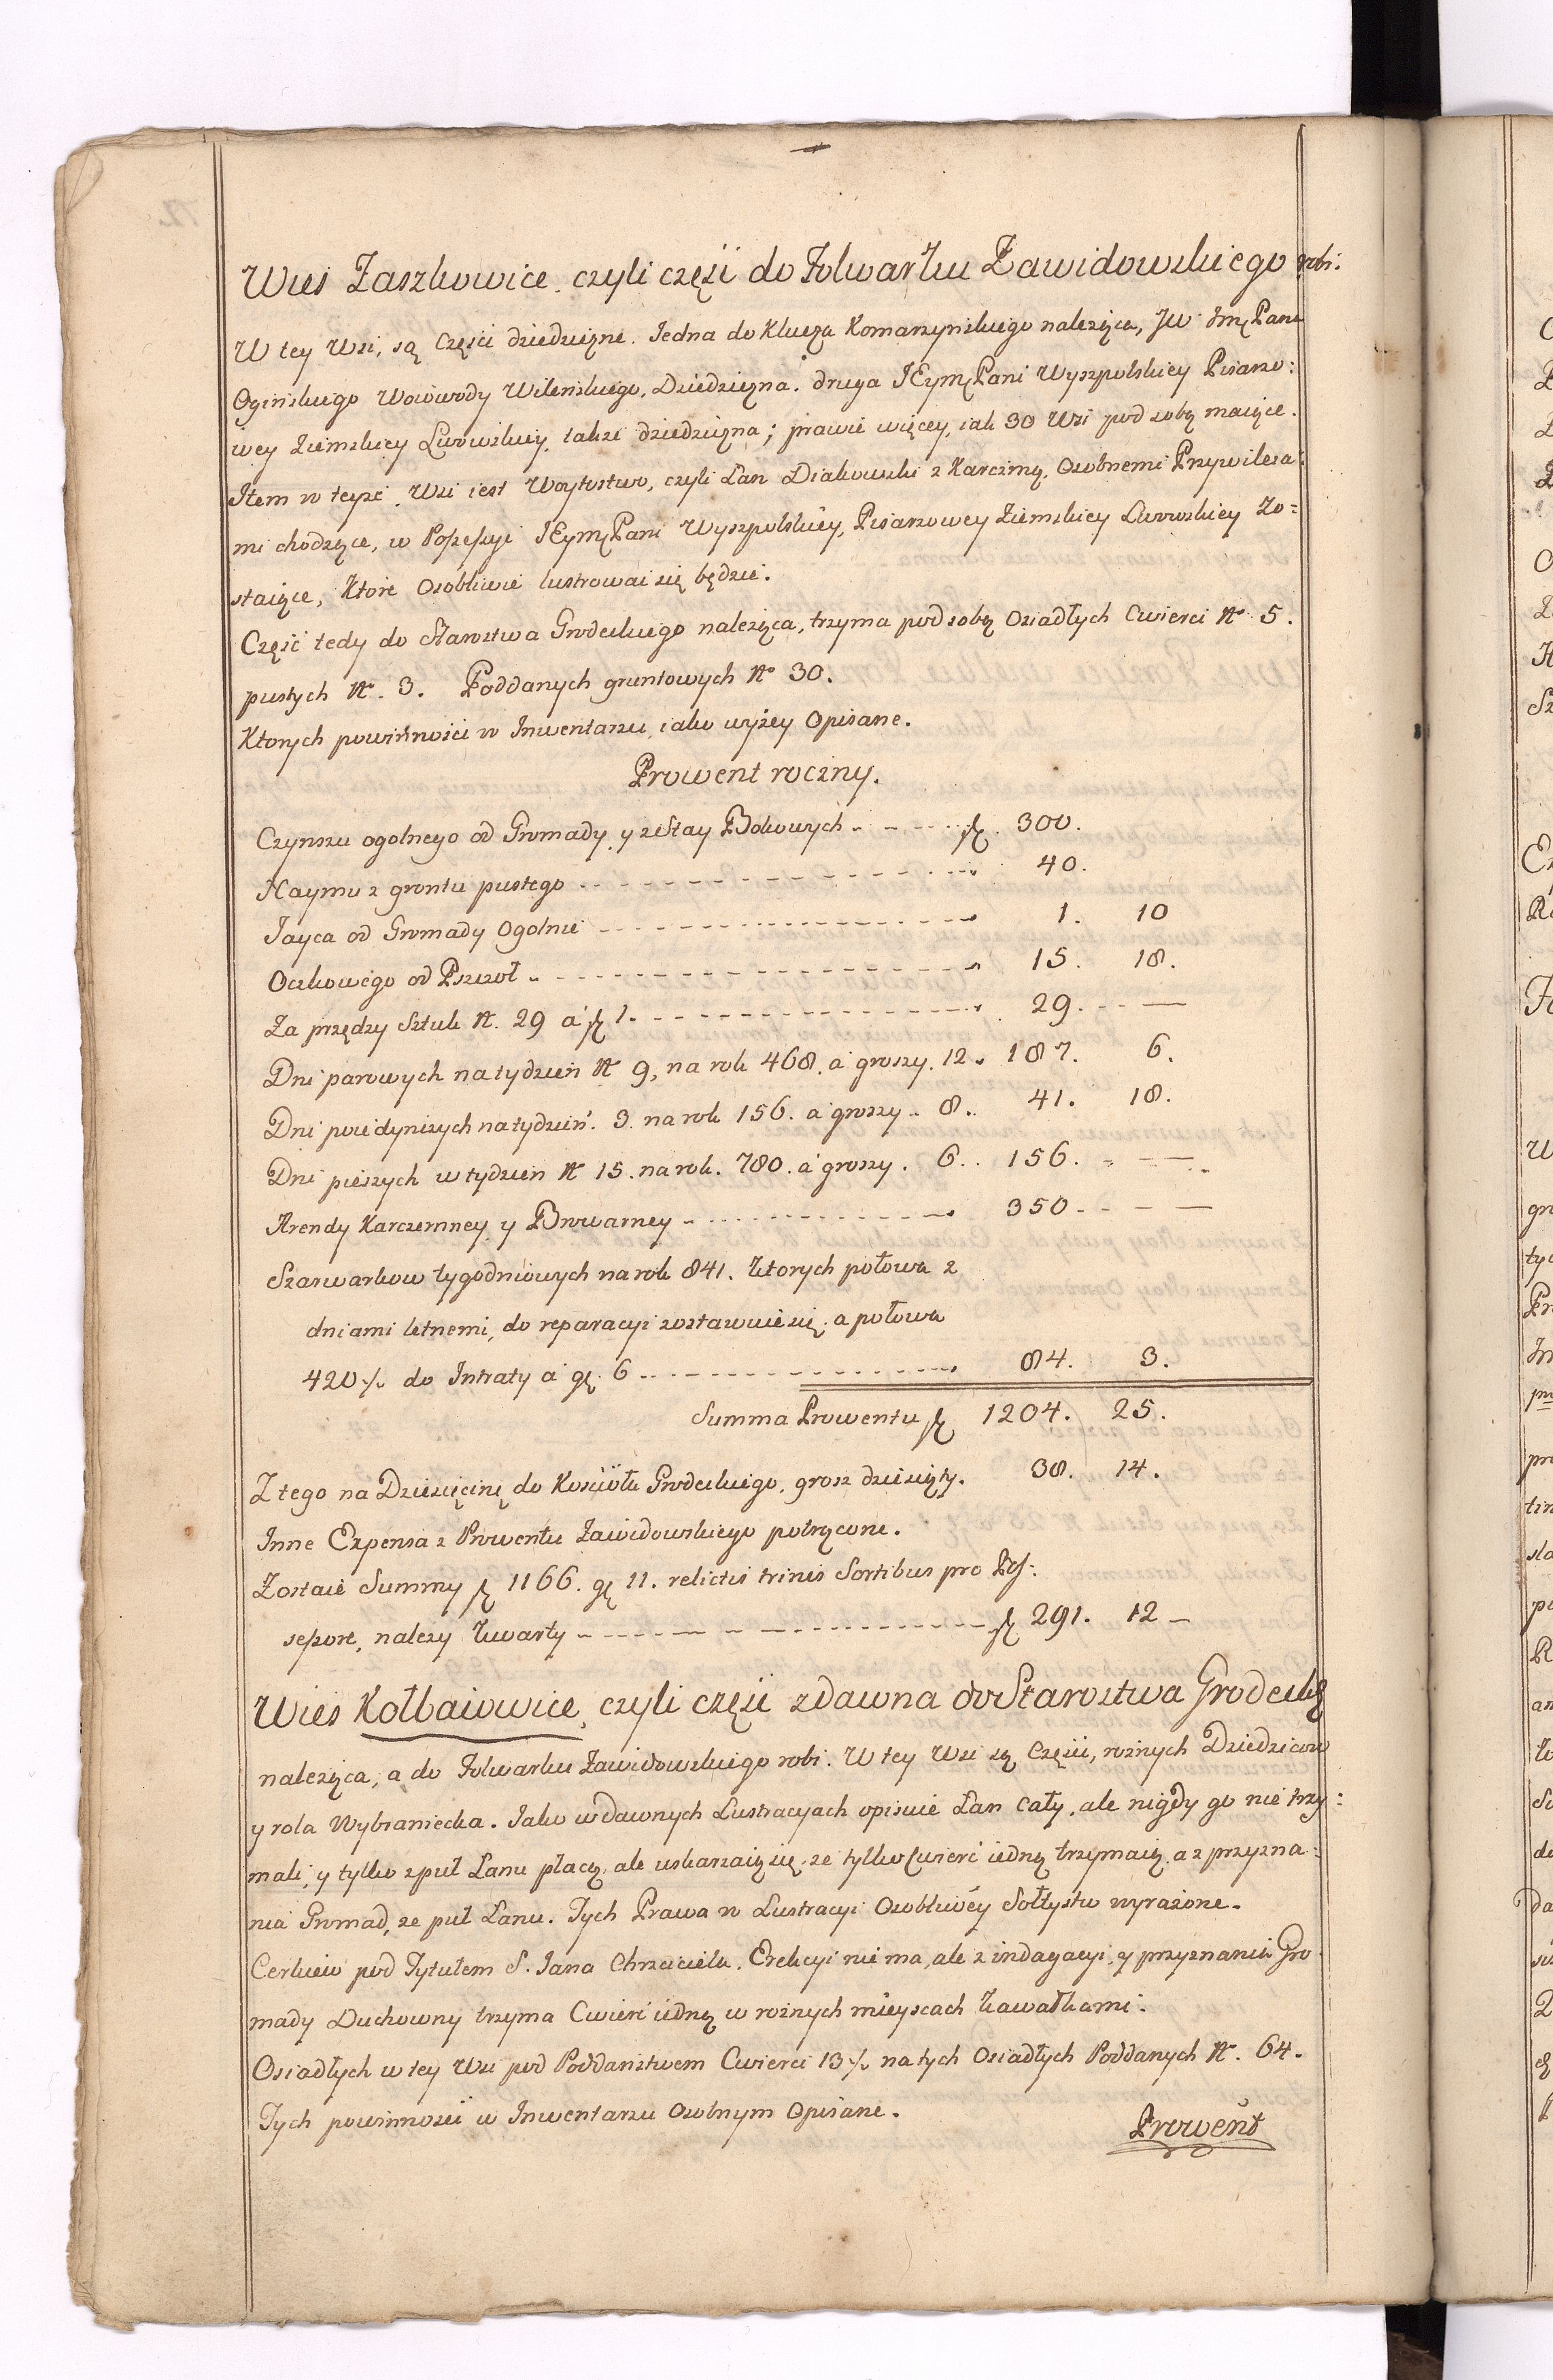 Wieś Zaszkowice, czyli część do Folwarku Zawidowskiego robi.
W tey Wsi, są Części dziedziczne. Jedna do Klucza Komarzyńskiego należąca, JW JmęPana
Ogińskiego Woiewody Wileńskiego, Dziedziczna. druga JEymęPani Wyszpolskiey Pisarzo:
wey Ziemskiey Lwowskiey, także dziedziczna; prawie więcey, iak 30 Wsi pod sobą maiące.
Item w teyże Wsi iest Woytostwo, czyli Łan Diakowski z Karczmą, Osobnemi Przywileia:
mi chodzące, w Possessyi JEymęPani Wyszpolskiey, Pisarzowey Ziemskiey Lwowskiey Zo=
staiące, Które Osobliwie lustrować się będzie.
Część tedy do Starostwa Grodeckiego należąca, trzyma pod sobą Osiadłych Cwierci No 5.
pustych No. 3. Poddanych gruntowych No 30.
Ktorych powinności w Inwentarzu, iako wyżey Opisane.
Prowent roczny.
Czynszu ogolnego od Gromady, y z Stay Bokowych - - - - - fl. 300.
Naymu z grontu pustego - - - - - 40.
Jayca od Gromady Ogolnie - - - - - 1. 10
Oczkowego od Pszczoł - - - - - 15. 18.
Za przędzy Sztuk N. 29 á fl 1. - - - - - 29. - - —
Dni parowych na tydzień N 9, na rok 468. á groszy. 12. 187. 6.
Dni poiedynczych na tydzień. 3. na rok 156. á groszy. 8. 41. 18.
Dni pieszych w tydzień N 15. na rok. 780. á groszy. 6. 156. - - —
Arendy Karczemney y Browarney - - - - - 350 - - - —
Szarwarkow tygodniowych na rok 841. ktorych połowa z
dniami letnemi, do reparacyi zostawuie się, a połowa
420 ½ do Intraty á gę. 6 - - - - - 84. 3.
Summa Prowentu fl 1204. 25.
Z tego na Dziesięcinę do Kościoła Grodeckiego, grosz dziesiąty. 38. 14.
Inne Expensa z Prowentu Zawidowskiego potrącone.
Zostaie Summy fl 1166. gę 11. relictis trinis Sortibus pro Pos:
sesore, należy kwarty - - - - - fl 291. 12 —
Wieś Kołbaiowice, czyli część zdawna do Starostwa Grodeckieg
należąca, a do Folwarku Zawidowskiego robi. W tey Wsi są Części, rożnych Dziedzicow
y rola Wybraniecka. Jako w dawnych Lustracyach opisuie Łan Cały, ale nigdy go nie trzy:
mali, y tylko z puł Łanu płacą, ale uskarzaią się, że tylko Cwierć iedną trzymaią, a z przyzna:
nia Gromad, ze puł Łanu. Tych Prawa w Lustracyi Osobliwéy Sołtystw wyrażone.
Cerkiew pod Tytułem S. Jana Chrzciciela. Erekcyi nie ma, ale z indagacyi, y przyznania Gro
mady Duchowny trzyma Cwierć iedną w rożnych mieyscach kawałkami.
Osiadłych w tey Wsi pod Poddaństwem Cwierci 13 ½ na tych Osiadłych Poddanych N. 64.
Tych powinności w Inwentarzu Osobnym Opisane.
Prowent